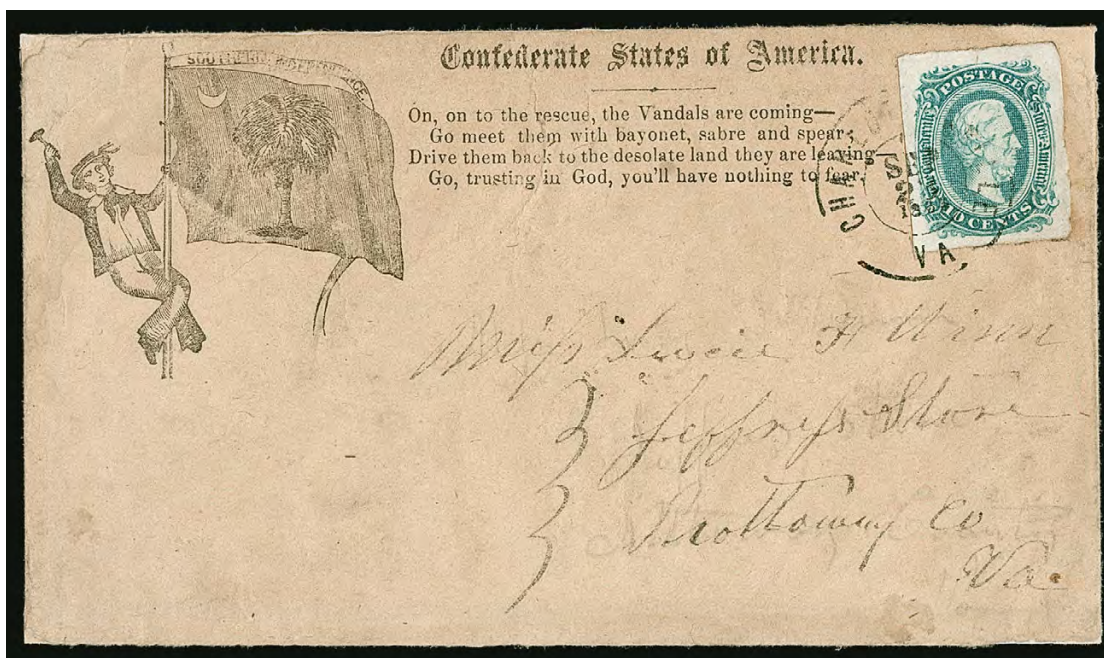 SOUTHERN INDEPENDENCE.
Confederate States of America.
On, on to the rescue, the Vandals are coming—
Go meet them with bayonet, sabre and spear;
Drive them back to the desolate land they are leaving
Go, trusting in God, you'll have nothing to fear.
POSTAGE
TEN 10 CENTS
CHA
VA
Miss Lucie F Winn
Jeffress Store
Nottoway Co
Va.